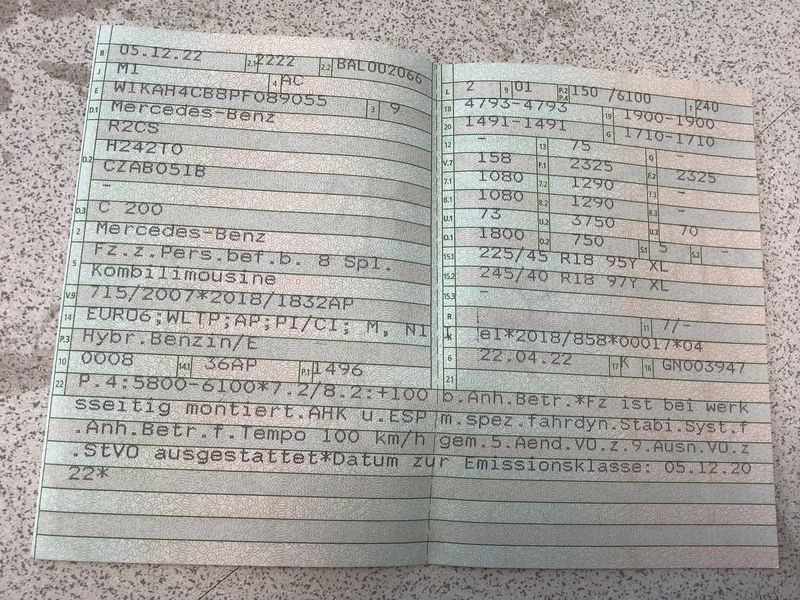 B 05.12.22 2.1 2222 2.2 BAL002066
J M1 4 AC
E W1KAH4CB8PF089055 3 9
D.1 Mercedes-Benz
R2CS
D.2 H242T0
CZAB051B
-
D.3 C 200
2 Mercedes-Benz
5 Fz.z.Pers.bef.b. 8 Spl.
Kombilimousine
V.9 715/2007*2018/1832AP
14 EURO6;WLTP;AP;PI/CI; M, N1 I
P.3 Hybr.Benzin/E
10 0008 14.1 36AP P.1 1496
L 2 9 01 P.2 P.4 150 /6100 T 240
18 4793-4793 19 1900-1900
20 1491-1491 G 1710-1710
12 - 13 75 Q -
V.7 158 F.1 2325 F.2 2325
7.1 1080 7.2 1290 7.3 -
8.1 1080 8.2 1290 8.3 -
U.1 73 U.2 3750 U.3 70
O.1 1800 O.2 750 S.1 5 S.2 -
15.1 225/45 R18 95Y XL
15.2 245/40 R18 97Y XL
15.3 -
R 11 7/-
K e1*2018/858*00017*04
6 22.04.22 17 K 16 GN003947
21
22 P.4:5800-6100*7.2/8.2:+100 b.Anh.Betr.*Fz ist bei werk
sseitig montiert.AHK u.ESP m.spez.fahrdyn.Stabi.Syst.f
.Anh.Betr.f.Tempo 100 km/h gem.5.Aend.VO.z.9.Ausn.VO.z
.StVO ausgestattet*Datum zur Emissionsklasse: 05.12.20
22*